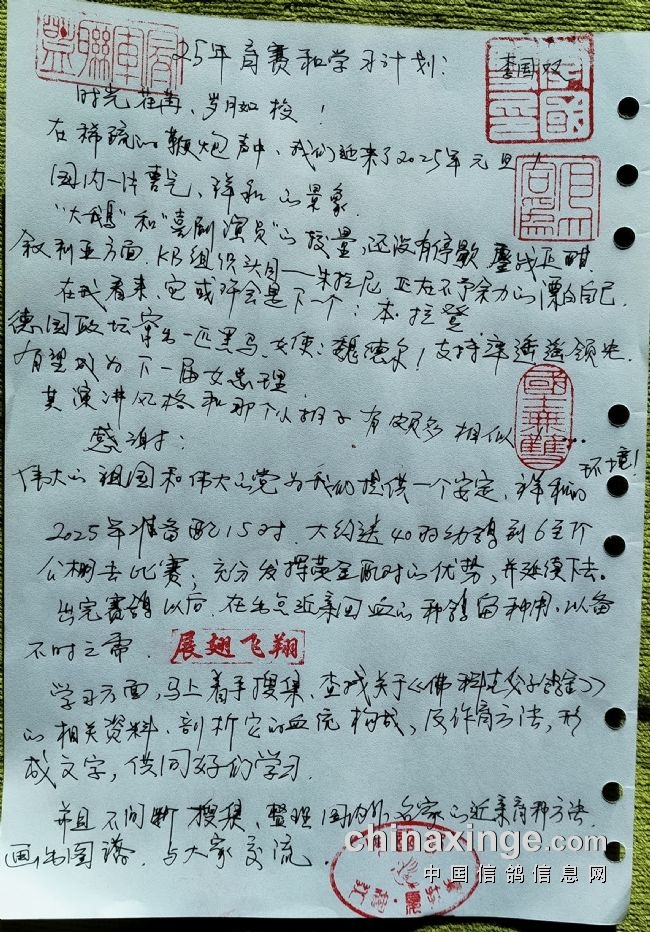 25年育赛和学习计划:
李国双
时光荏苒,岁月如梭!
在稀疏的鞭炮声中,我们迎来了2025年元旦!
国内一片喜气、祥和的景象.
“大鹅”和“喜剧演员”的较量,还没有停歇 鏖战正酣.
叙利亚方面.KB组织头目——朱拉尼 正在不予余力的漂白自己.
在我看来,它或许会是下一个:本.拉登
德国政坛 一匹黑马,女侠:魏德尔!支持率遥遥领先.
有望成为下一届女总理
其演讲风格和那个小胡子有颇多相似……
感谢:
伟大的祖国和伟大的党为我们提供一个安定、祥和的
环境!
2025年准备配15对.大约送40羽幼鸽到6至7个
公棚去比赛;充分发挥黄金配对的优势,并延续下去.
出完赛鸽以后.在出点近亲回血的种鸽留种用.以备
不时之需.
展翅飞翔
学习方面,马上着手搜集、查找关于《佛利克父子》
的相关资料.剖析它的血统构成,及作育方法,形
成文字,供同好们学习.
并且不间断搜集、整理国内外名家的近亲育种方法.
画出图谱.与大家交流.
chinaxinge.com
中国信鸽信息网